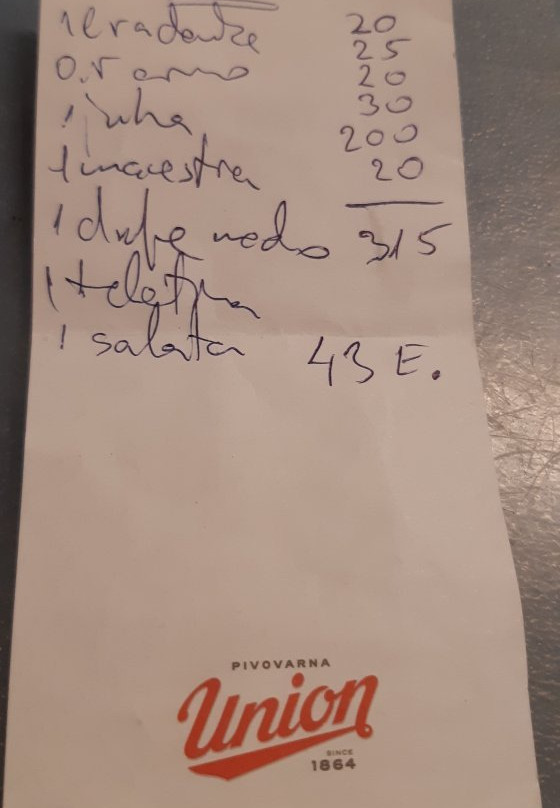 1 l radenske 20
0.5 crno 25
1 juha 20
1 maestra 30
1 duple meso 200
1 teletina 20
1 salata 315
43 E.
PIVOVARNA
Union
SINCE
1864